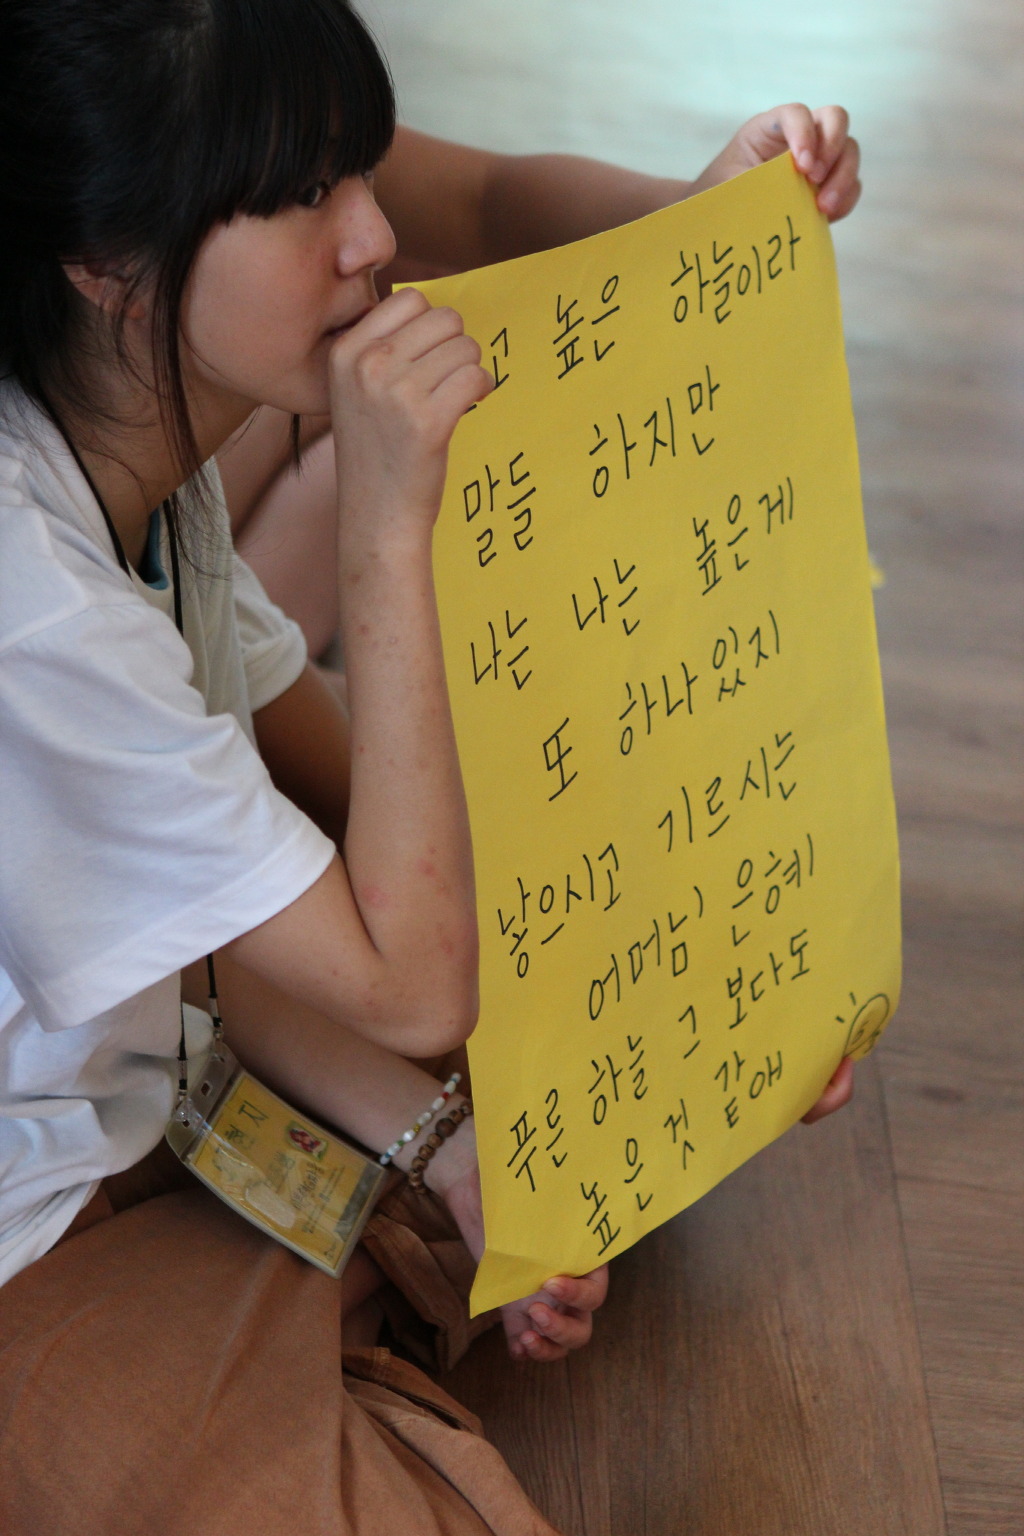 높은 하늘이라
말들 하지만
나는 나는 높은게
또 하나 있지
낳으시고 기르시는
어머님 은혜
푸른 하늘 그 보다도
높은 것 같애